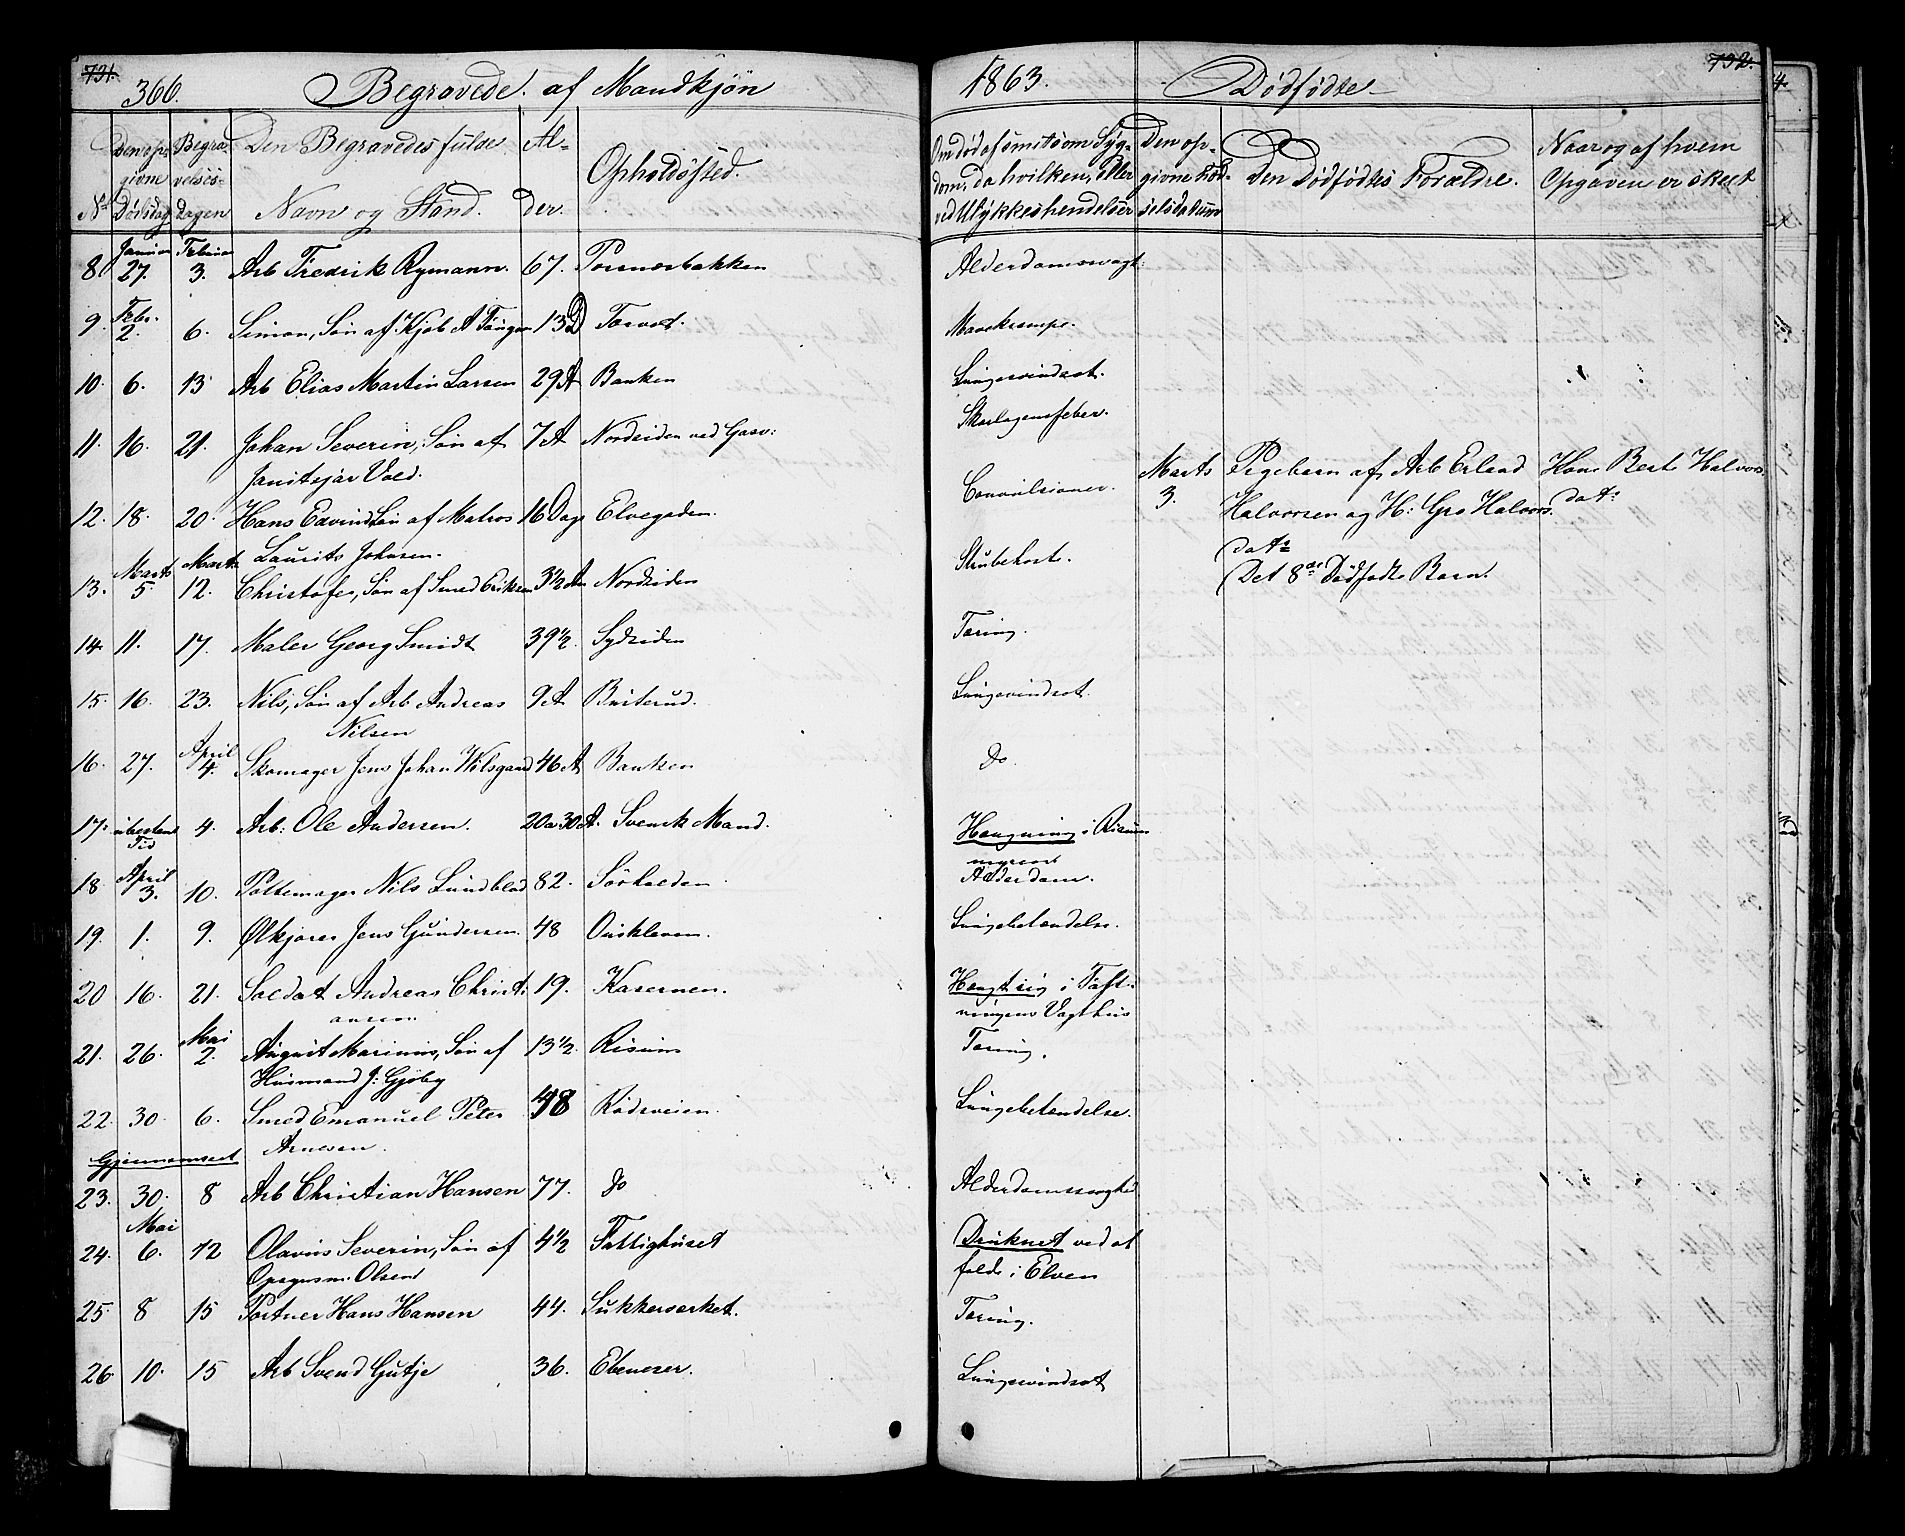 731. 366. Begravede af Mandkjøn 1863. Dødfødte 732.
No Den opgivne Dødsdag
Begravelsesdagen
Den Begravedes fulde Navn og Stand.
Alder.
Opholdssted.
Om død af smitsom Sygdom, da hvilken, eller ved Ulykkeshendelser
Den opgivne Fødselsdatum
Den Dødfødtes Forældre.
Naar og af hvem Opgaven er skeet
8. Januar 27. Februar 3. Arb Fredrik Rymann. 67. Tornesbakken Alderdomssvagh:
9. Febr. 2. 6. Simon, Søn af Kjøb A 13 D Torvet. Mavekrampe.
10. 6. 13 Arb Elias Martin Larsen 29 A Banken Lungesvindsot.
11. 16. 21. Johan Severin, Søn af 7 A Nordsiden ved Gasv: Skarlagensfeber.
Janitsjar Vold.
12. 18. 20. Hans Edvind Søn af Matros 16 Dage Elvegaden. Convulsioner.
Laurits Johnsen.
Marts 3. Pigebarn af Arb Erland Kone Berte Halvors
Halvorsen og H: Gro Halvors. dat:
dat:
Det 8de Dødfødte Barn.
13. Marts 5. Marts 12. Christofer, Søn af Smed Eriksen 3½ A Nordsiden Strubehoste.
14. 11. 17. Maler Georg Smidt 39½ Sydsiden Tæring.
15. 16. 23. Nils, Søn af Arb Andreas 9 A Lungesvindsot.
Nilsen
16. 27. April 4. Skomager Jens Johan Wilsgaard 46 A Banken Do.
17. ubestemt Tid 4. Arb: Ole Andersen. 20 a 30 A. Svensk Mand. Hængning i Risum
18. April 3. 10. Pottemager Nils Lundblad 82. Sørhalden. Alderdom.
19. 1. 9. Ølkjører Jens Gundersen 48 Lungebetændelse.
20 16. 21. Soldat Andreas Christi 19. Kasernen. Hængt sig i Fæst-
ansen ningens Vagthus
21. 26. Mai 2. August Marinius, Søn af 13½ Risum Tæring.
Husmand J: Gjøby
22. 30. 6. Smed Emanuel Peter 48 Rødsveien. Lungebetændelse.
Arnesen.
Gjennemseet
23. 30. 8 Arb Christian Hansen 77. do Alderdomssvaghed
24. Mai 6. 12 Olavus Severin, Søn af 4½ Fattighuset Druknet ved at
Opsynsm. Olsen falde i Elven
25. 8 15 Portner Hans Hansen 44. Sukkerværket. Tæring.
26 10. 15 Arb Svend Gutje 36. Ebeneser. Lungesvindsot